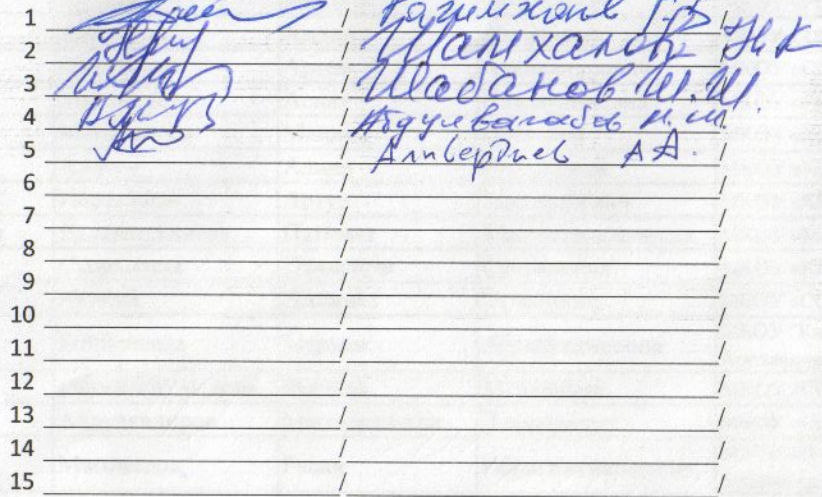 1 / Рагимханов Г.Б /
2 / Шамхалов Н.К /
3 / Шабанов Ш.Ш. /
4 / Абдулвагабов М.Ш. /
5 / Аливердиев А.А. /
6 / /
7 / /
8 / /
9 / /
10 / /
11 / /
12 / /
13 / /
14 / /
15 / /